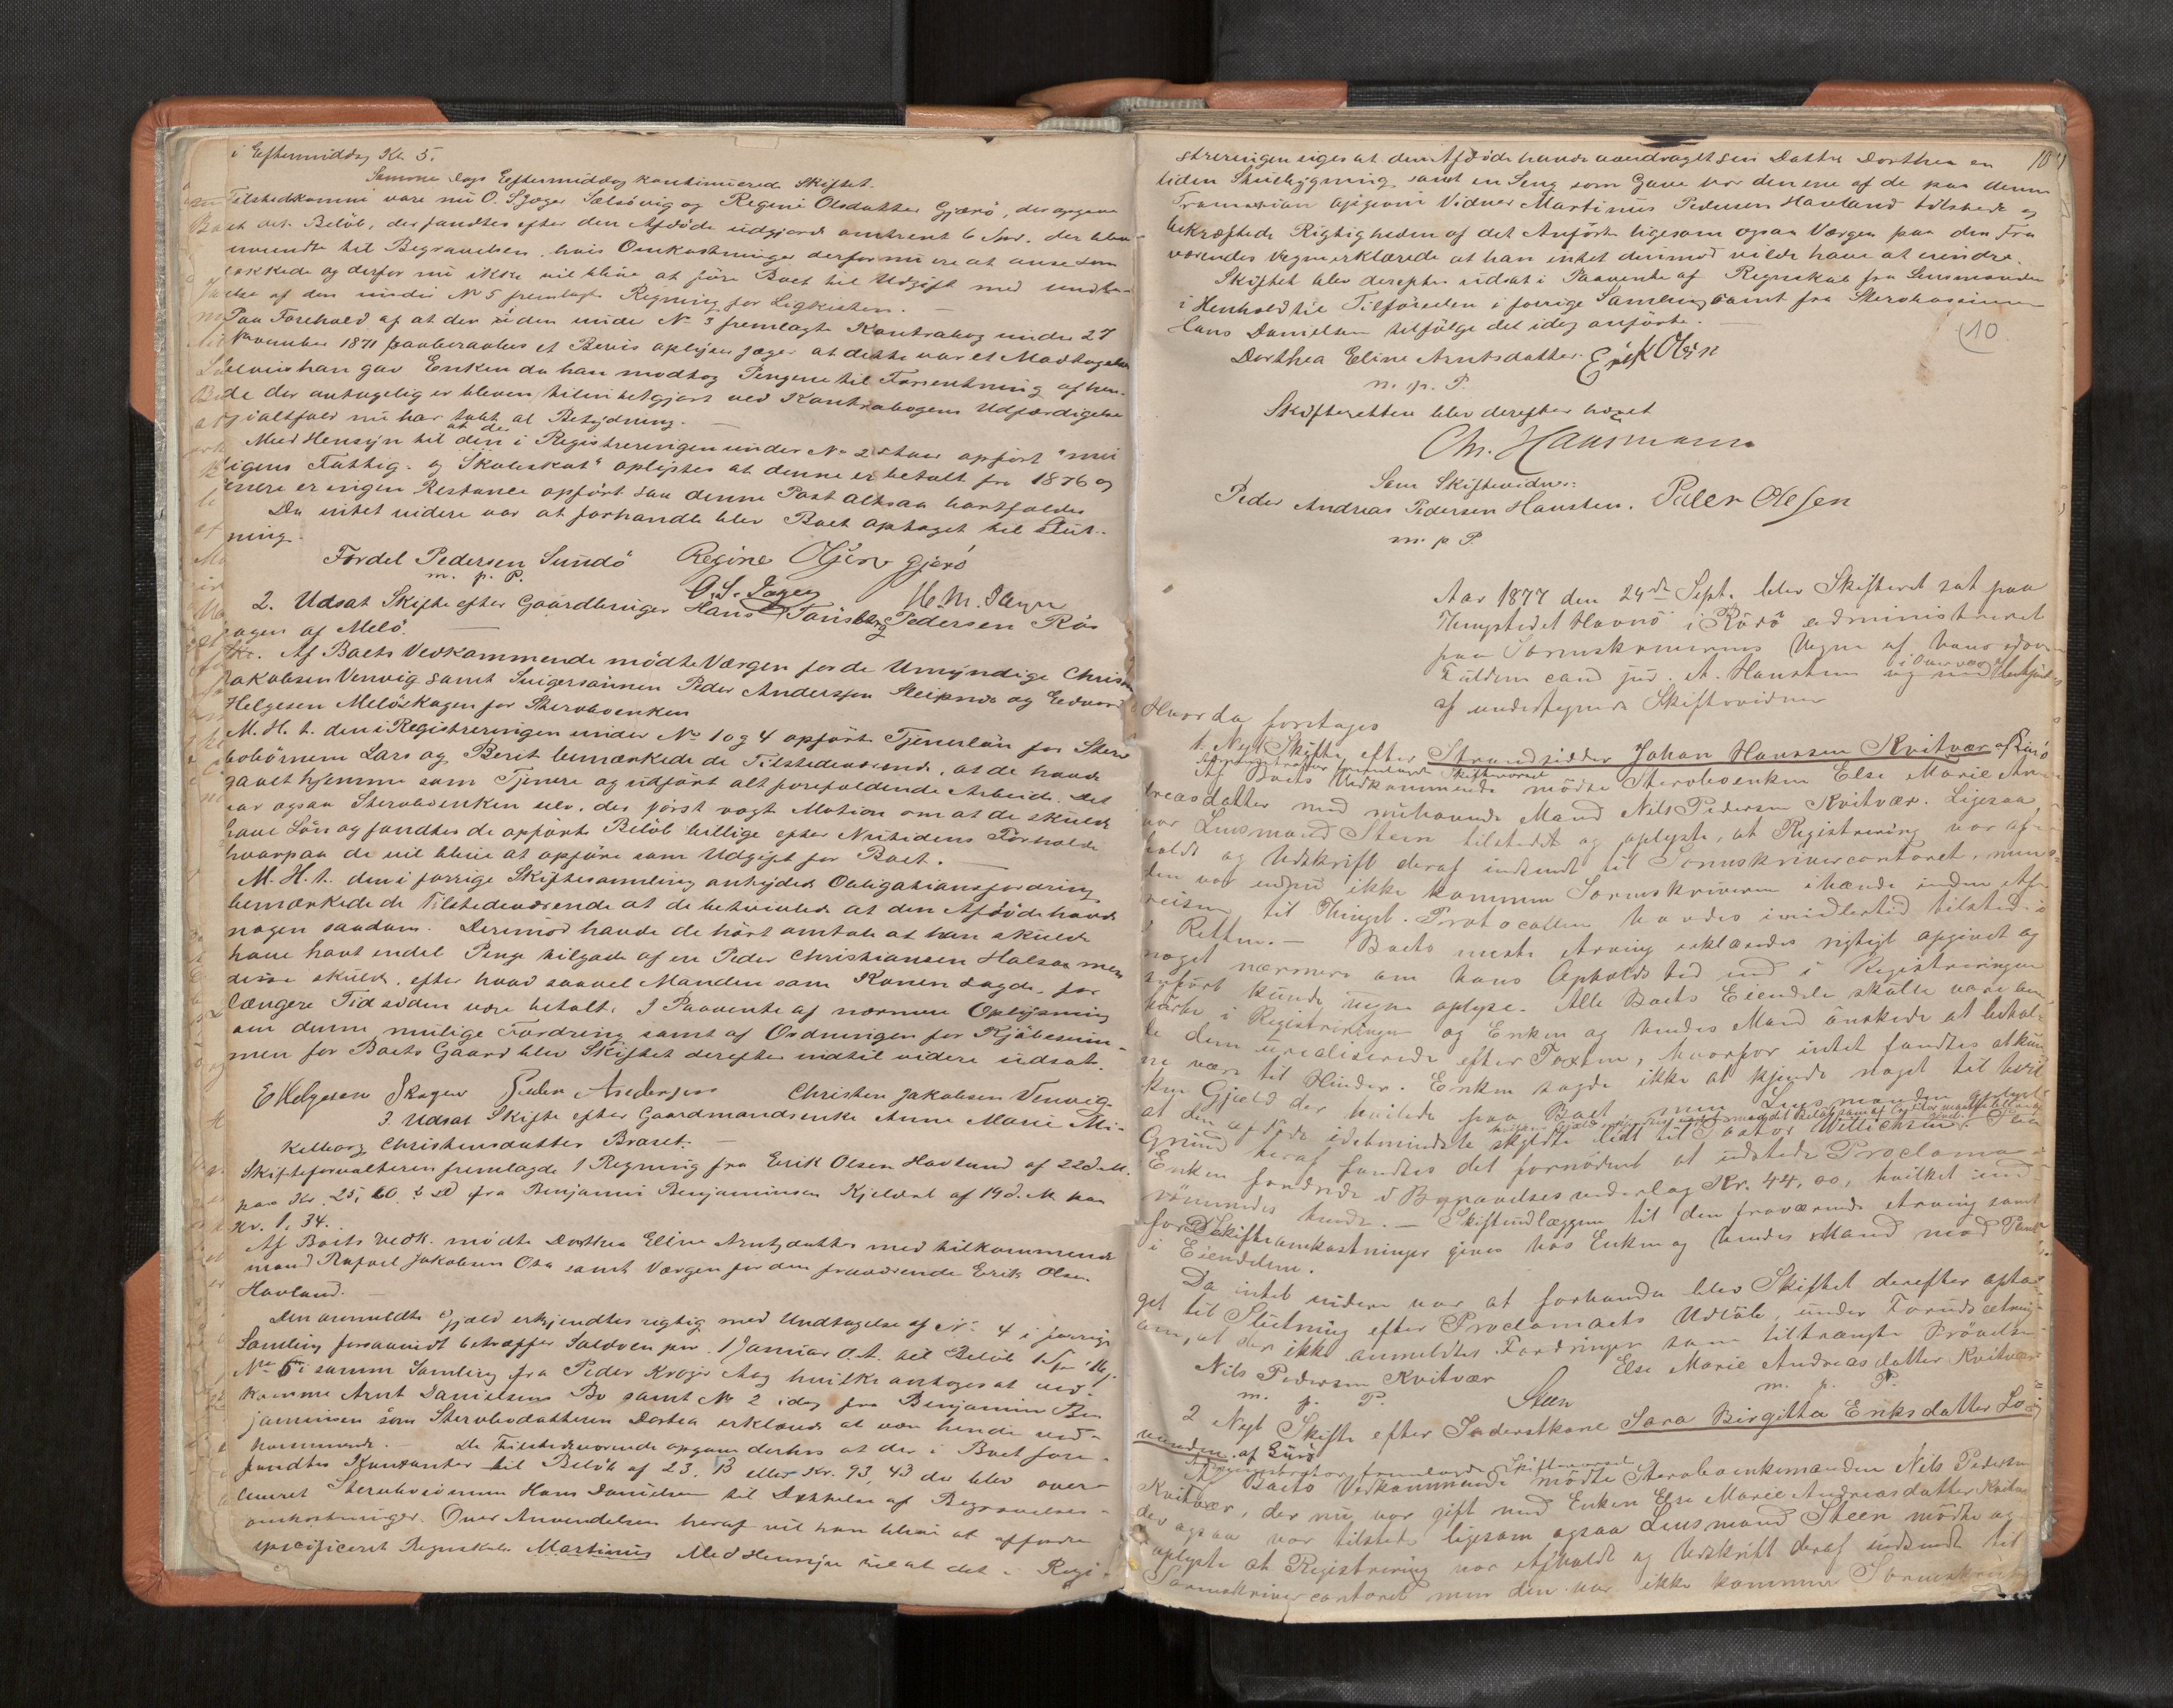 i Eftermiddag Kl. 5.
Samme Dags Eftermiddag kontinuerede Skiftet.
Tilstedkomne vare nu O. S. Jæger Selsøvig og Regine Olsdatter Gjærø, der opgave
at det Beløb, der fandtes efter den Afdøde udgjorde omtrent 6 Spd. der blev
anvendt til Begravelsen, hvis Omkostninger derfor nu ere at anse som
dækkede og derfor nu ikke vil blive at føre Boet til Udgift med Undta-
gelse af den under No 5 fremlagte Regning for Ligkisten. —
Paa Forehold af at der i den under No 3 fremlagte Kontrabog under 27
November 1871 paaberaabes et Bevis oplyser Jæger at dette var et Modtagelses
bevis han gav Enken da han modtog Pengene til Forrentning af hen-
de der antagelig er bleven tilintetgjort ved Kontrabogens Udfærdigelse
og ialtfald nu har tabt al Betydning. —
Med Hensyn til at der i Registreringen under No 2 staar opført "mu
ligens Fattig- og Skoleskat" oplystes at denne er betalt for 1876 og
senere er ingen Restance opført saa denne Post altsaa bortfalder
Da intet videre var at forhandle blev Boet optaget til Slut-
ning.
Fordel Pedersen Sundø Regine Olsen Gjerø
m. p. P.
O. S. Jæger
2. Udsat Skifte efter Gaardbruger Hans Tønsberg Pedersen Røs
hagen af Melø.
Af Boets Vedkommende mødte Værgen for de Umyndige Christen
Jakobsen Venvig samt Svigersønnen Peder Andersen Sleipnes og Edvard
Helgesen Meløskagen for Stervboenken
M. H. t. den i Registreringen under No 1 og 4 opført Tjenerløn for Sterv
bobørnene Lars og Berit bemærkede de Tilstedeværende, at de havde
gaaet hjemme som Tjenere og udført alt forefaldende Arbeide. Det
var ogsaa Stervboenken selv, der først vagt Motion om at de skulde
have Løn og fandtes de opførte Beløb billige efter Nutidens Forholde
hvorpaa de vil blive at opføre som Udgift for Boet. —
M. H. t. den i forrige Skiftesamling antydede Obligationsfordring
bemærkede de Tilstedeværende at de betvivlede at den Afdøde havde
nogen saadan. Derimod havde de hørt omtale at han skulde
have havt endel Penge tilgode af en Peder Christiansen Halsaa men
disse skulde, efter hvad saavel Manden som Konen sagde, for
længere Tid siden være betalt. I Paavente af nærmere Oplysning
om denne mulige Fordring samt af Ordningen for Kjøbesum-
men for Boets Gaard blev Skiftet derefter indtil videre udsat.
E Helgesen Skagen Peder Andersen Christen Jakobsen Venvig
3. Udsat Skifte efter Gaardmandsenke Anne Marie Mi-
kelborg Christensdatter Braset. —
Skifteforvalteren fremlagde 1 Regning fra Erik Olsen Havland af 22 d. M.
paa Kr. 25,60. 2 do fra Benjamin Benjaminsen Kjeldal af 19 d. M. paa
Kr. 1,34.
Af Boets Vedk. mødte Dorthea Eline Arntsdatter med tilkommende
mand Rafael Jakobsen Osa samt Værgen for den fraværende Erik Olsen
Havland. —
Den anmeldte Gjæld erkjendtes rigtig med Undtagelse af No 4 i forrige
Samling forsaavidt betræffer Saldoen pr. 1 Januar d. A. til Beløb
No 6 i samme Samling fra Peder Krøger Aag hvilke antoges at ved-
komme Arnt Danielsens Bo samt No 2 idag fra Benjamin Ben
jaminsen som Stervbodatteren Dortea erklærede at være hende ved-
kommende. — De Tilstedeværende opgave derhos at der i Boet fore-
fandtes Kontanter til Beløb af 23. 13 eller Kr. 93,43 der blev over-
leveret Stervbosønnen Hans Danielsen til Dækkelse af Begravelses-
omkostninger. Over Anvendelsen heraf vil han blive at affordre
specificeret Regnskab. Martinus Med Hensyn til at det i Regi-
107
streringen siges at den Afdøde havde overdraget sin Datter Dorthea en
liden Stuebygning samt en Seng som Gave var den ene af de paa denne
Transaktion opgivne Vidner Martinus Pedersen Havland tilstede og
bekræftede Rigtigheden af det Anførte ligesom ogsaa Værgen paa den Fra
værendes Vegne erklærede at han intet derimod vilde have at erindre.
Skiftet blev derefter udsat i Paavente af Regnskab fra Lensmanden
i Henhold til Tilførselen i forrige Samling samt fra Stervbosønnen
Hans Danielsen tilfølge det idag anførte. —
10
Dorthea Eline Arntsdatter Erik Olsen
m. p. P.
Skifteretten blev derefter hævet
Chr. Hansmann
Som Skiftevidner:
Peder Andreas Pedersen Hausten. Peder Olessen
m. p. P.
Aar 1877 den 24de Sept. blev Skifteret sat paa
Thingstedet Havnø i Rødø administreret
paa Sorenskriverens Vegne af hans edsv.
Fuldm. cand. jur. A. Hansteen i Overvær
af undertegnede Skiftevidner
Hvorda foretoges
1. Nyt Skifte efter Strandsidder Johan Hanssen Kvitvær af Lurø
Administrator fremlagde Skifteforvarsel
Af Boets Vedkommende mødte Stervboenken Else Marie An-
dreasdatter med nuhavende Mand Nils Pedersen Kvitvær. Ligesaa
var Lensmand Steen tilstede og oplyste, at Registrering var af-
holdt og Udskrift deraf indsendt til Sorenskrivercontoret, men
den var endnu ikke kommen Sorenskriveren ihænde inden Af-
reisen til Thinget. Protocollen havdes imidlertid tilstede i
Retten. — Boets neste Arving erklæredes rigtigt opgivet og
noget nærmere om hans Opholdssted end i Registreringen
anført kunde ingen oplyse. Alle Boets Eiendele skulle være an-
førte i Registreringen og Enken og hendes Mand ønskede at behol-
de dem urealiserede efter Taxten, hvorfor intet fandtes at kun-
ne være til Hinder. Enken sagde ikke at kjende noget til hvil-
ken Gjæld der hvilede paa Boet men Lensmanden oplyste
at den afdøde idetmindste skyldte lidt til Pastor Wittichsen. Paa
Grund heraf fandtes det fornødent at udstede Proclama
Enken fordrede i Begravelsesudlæg Kr. 44,00, hvilket ind-
rømmedes hende. — Skifteudlæggene til den fraværende Arving samt
for Skifteomkostninger gives hos Enken og hendes Mand mod Pant
i Eiendelene.
Da intet videre var at forhandle blev Skiftet derefter opta-
get til Slutning efter Proclamaets Udløb, under Forudsætning
om, at der ikke anmeldtes Fordringer som tiltrængte Prøvelse
Nils Pedersen Kvitvær Else Marie Andreasdatter Kvitvær
m. p. P. Steen m. p. P.
2 Nyt Skifte efter Inderstkone Sara Birgitta Eriksdatter Lo-
vunden af Lurø
Administrator fremlagde Skifteforvarsel
Af Boets Vedkommende mødte Stervboenkemanden Nils Pedersen
Kvitvær, der nu var gift med Enken Else Marie Andreasdatter Kvitvær
der ogsaa var tilstede ligesom ogsaa Lensmand Steen mødte og
oplyste at Registrering var afholdt og Udskrift deraf indsendt til
Sorenskrivercontoret men den var ikke kommen Sorenskriv-